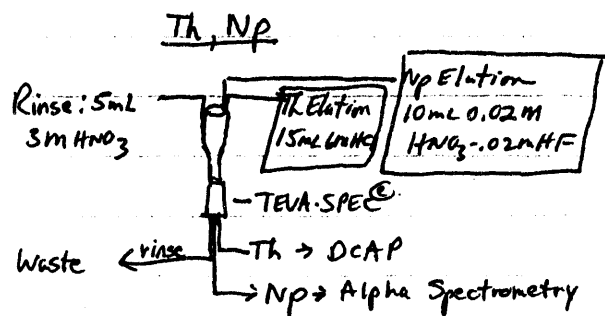 Th, Np
Rinse: 5mL
3M HNO3
Th Elution
15mL 6M HCl
Np Elution
10mL 0.02M
HNO3-.02M HF
TEVA-SPEC®
Th → DCAP
Waste ← rinse
Np → Alpha Spectrometry